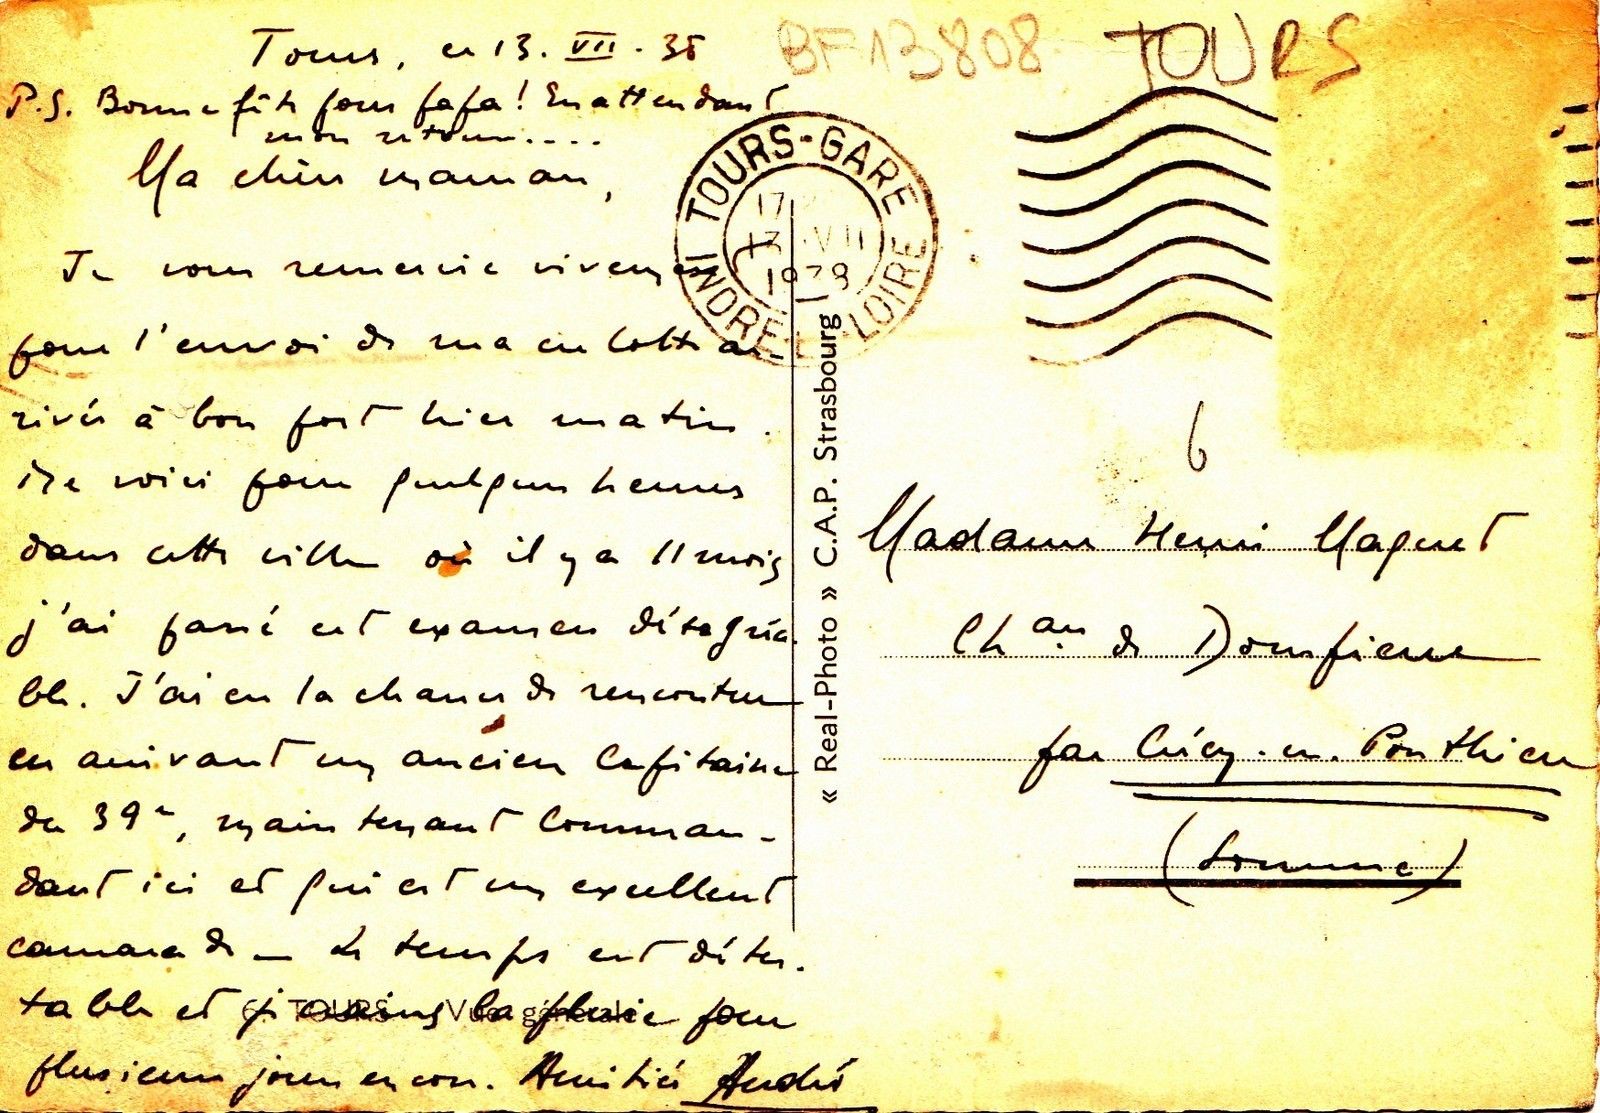 Tours, ce 13.VII.38
P.S. Bonne fête pour papa! En attendant
mon retour....
Ma chère maman,
Je vous remercie vivement
pour l'envoi de ma culotte ar-
rivée à bon port hier matin.
Me voici pour quelques heures
dans cette ville où il y a 11 mois
j'ai passé cet examen désagréa-
ble. J'ai eu la chance de rencontrer
en arrivant un ancien Capitaine
du 39e, maintenant Comman-
dant ici et qui est un excellent
camarade – Le temps est détes-
table et je crains la pluie pour
plusieurs jours encore. Amitiés André
6. TOURS - Vue générale
BF13808 TOURS
TOURS-GARE
17
13 · VII
1938
INDRE-ET-LOIRE
« Real-Photo » C.A.P. Strasbourg
6
Madame Henri Maguet
Chau de Dompierre
par Crécy-en-Ponthieu
(Somme)